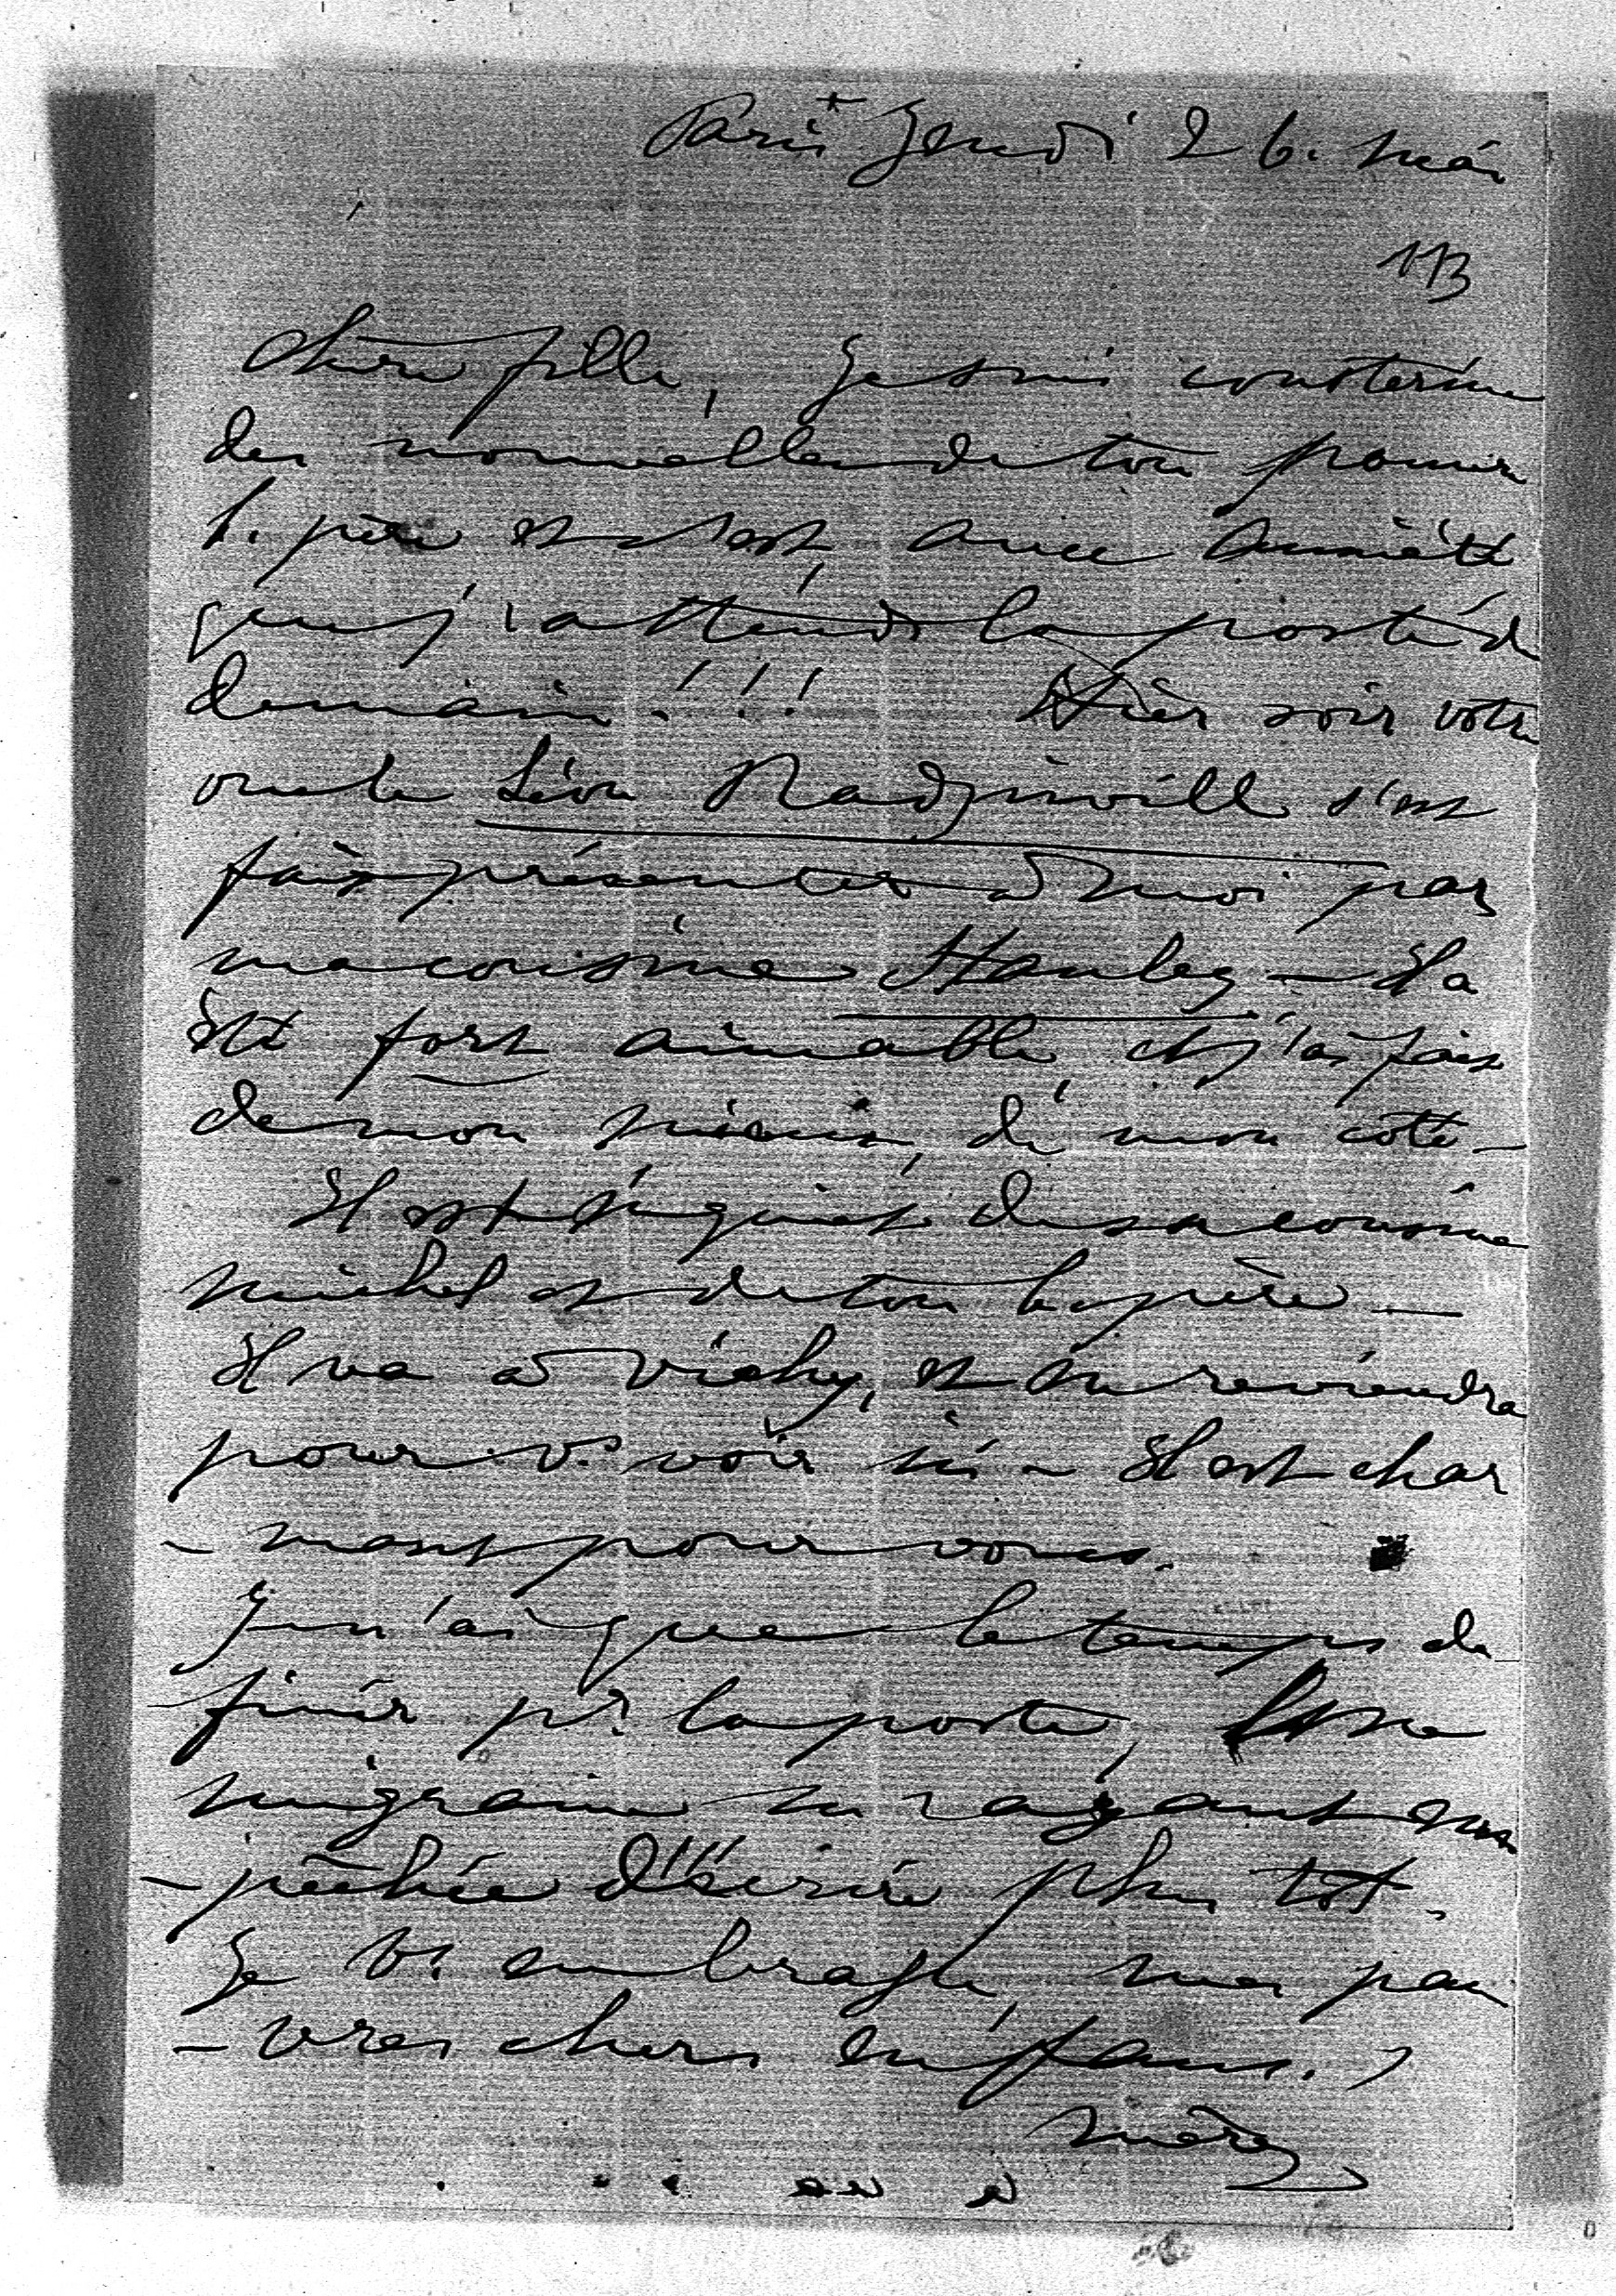 Paris Jeudi 26. Mai
113
Chère fille, Je suis consternée
des nouvelles de ton pauvre
b. père et c'est avec anxiété
que j'attends la poste de
demain!!! Hier soir votre
oncle Léon Radziwill s'est
fait présenter à moi par
ma cousine Stanley — Il a
été fort aimable et j'ai fait
de mon mieux, de mon côté —
Il est inquiet de sa cousine
Michel et de ton b. père —
Il va à Vichy, et en reviendra
pour vs voir ici — Il est char
-mant pour vous.
Je n'ai que le temps de
finir pr la poste, Une
migraine m'ayant em
-pêchée d'écrire plus tôt.
Je vs embrasse, mes pau
-vres chers enfans.
Mère